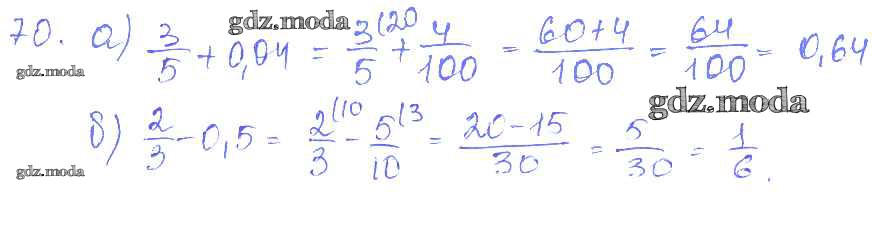 gdz.moda
70. а) 3/5 + 0,04 = 3(20/5 + 4/100 = 60+4/100 = 64/100 = 0,64
gdz.moda
gdz.moda
б) 2/3 - 0,5 = 2(10/3 - 5(3/10 = 20-15/30 = 5/30 = 1/6.
gdz.moda